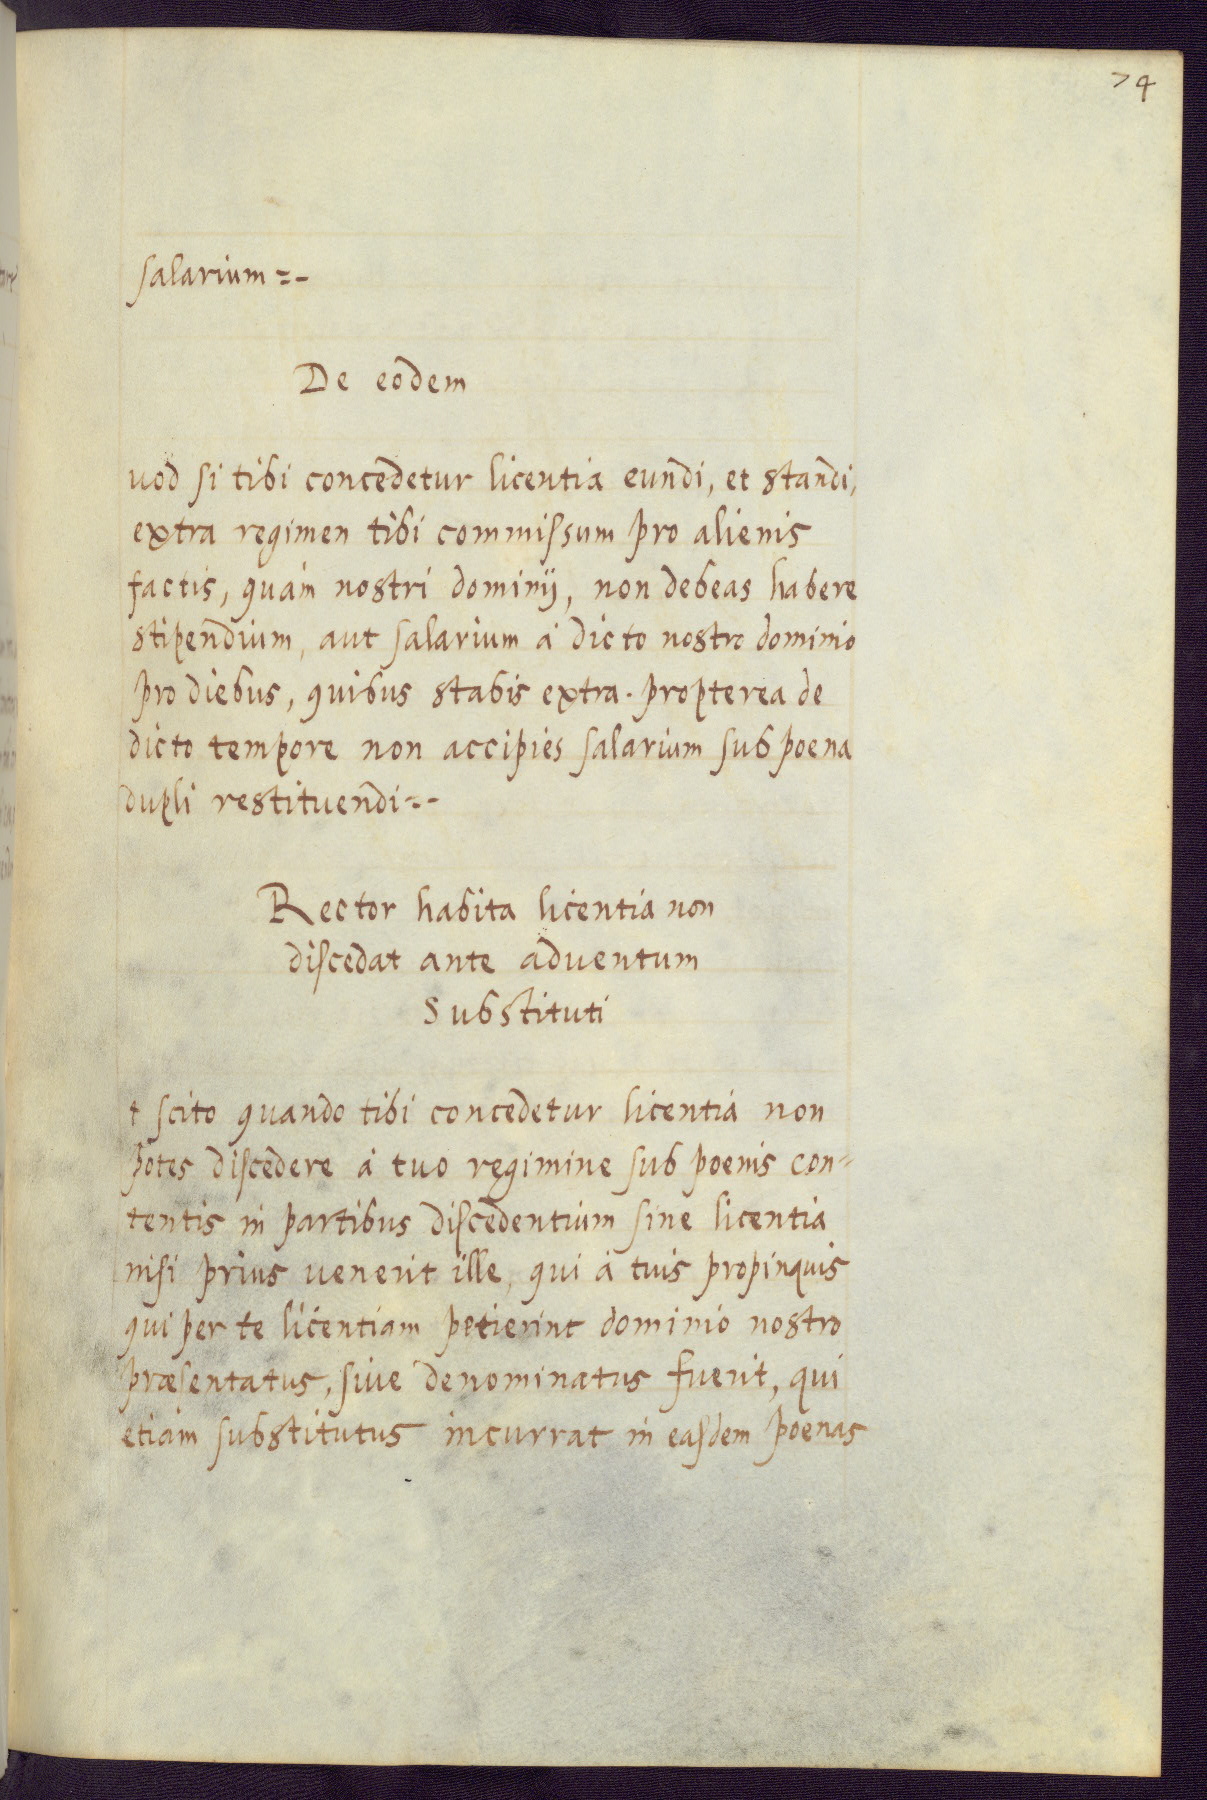 74
salarium =-
De eodem
uod si tibi concedetur licentia eundi, et standi,
extra regimen tibi commissum pro alienis
factis, quàm nostri dominij, non debeas habere
stipendium, aut salarium à dicto nostro dominio
pro diebus, quibus stabis extra. propterea de
dicto tempore non accipies salarium sub poena
dupli restituendi=-
Rector habita licentia non
discedat ante adventum
Substituti
t scito quando tibi concedetur licentia non
potes discedere à tuo regimine sub poenis con-
tentis in partibus discedentium sine licentia
nisi prius venerit ille, qui à tuis propinquis
qui per te licentiam petierint dominio nostro
præsentatus, sive denominatus fuerit, qui
etiam substitutus incurrat in easdem poenas